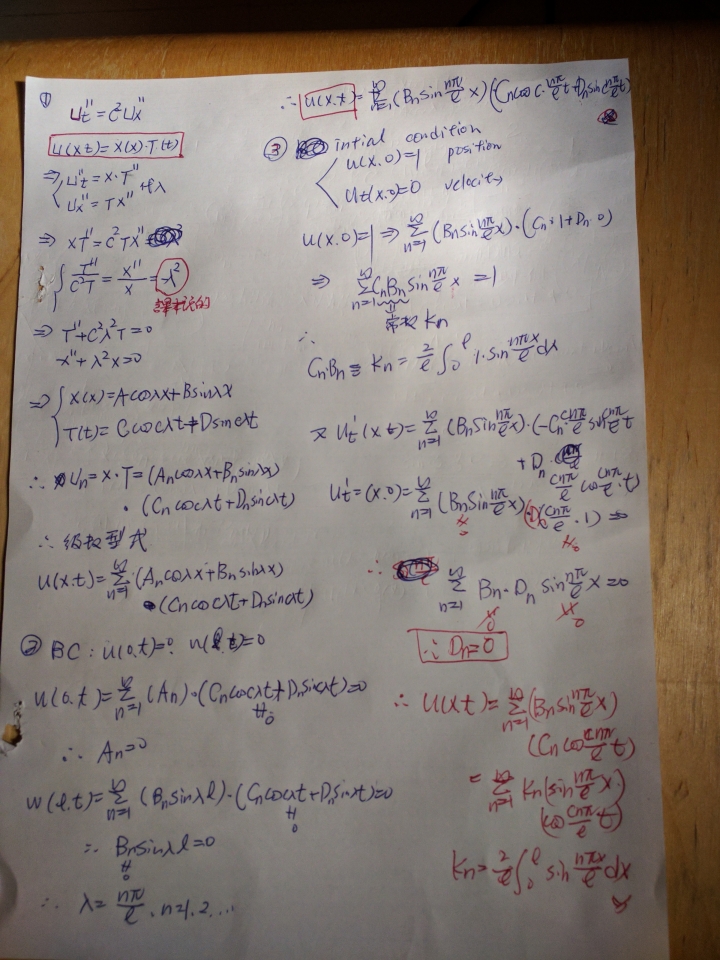 ①
u_t'' = c²u_x''
u(x,t) = X(x)·T(t)
⇒ { u_t'' = X·T''
u_x'' = TX'' 代入
⇒ XT'' = c²TX''
{ T''/c²T = X''/X = -λ²
課本说的
⇒ T'' + c²λ²T = 0
X'' + λ²X = 0
⇒ { X(x) = Acosλx + Bsinλx
T(t) = Ccoscλt + Dsincλt
∴ u_n = X·T = (A_n cosλx + B_n sinλx)
· (C_n coscλt + D_n sincλt)
∴ 级极型式
u(x,t) = Σ_{n=1}^∞ (A_n cosλx + B_n sinλx)
· (C_n coscλt + D_n sincλt)
② BC: u(0,t)=0. u(l,t)=0
u(0,t) = Σ_{n=1}^∞ (A_n)·(C_n coscλt + D_n sincλt) = 0
∦ 0
∴ A_n = 0
u(l,t) = Σ_{n=1}^∞ (B_n sinλl)·(C_n coscλt + D_n sincλt) = 0
∦ 0
∴ B_n sinλl = 0
∦ 0
∴ λ = nπ/l, n=1,2....
∴ u(x,t) = Σ_{n=1}^∞ (B_n sin nπ/l x)(C_n cos c·nπ/l t + D_n sin cnπ/l t)
③ intial condition
< u(x,0)=1 position
u_t(x,0)=0 velocity
u(x,0)=1 ⇒ Σ_{n=1}^∞ (B_n sin nπ/l x)·(C_n·1 + D_n·0)
⇒ Σ_{n=1}^∞ C_n B_n sin nπ/l x = 1
常数 K_n
∴
C_n·B_n ≡ K_n = 2/l ∫_0^l 1·sin nπx/l dx
又 u_t'(x,t) = Σ_{n=1}^∞ (B_n sin nπ/l x)·(-C_n·cnπ/l sin cnπ/l t
+ D_n cnπ/l cos cnπ/l·t)
u_t' = (x,0) = Σ_{n=1}^∞ (B_n sin nπ/l x)·D_n(cnπ/l·1) ⇒
∦ 0 ∦ 0
∴ Σ_{n=1}^∞ B_n·D_n sin nπ/l x = 0
∦ 0 ∦ 0
∴ D_n = 0
∴ u(x,t) = Σ_{n=1}^∞ (B_n sin nπ/l x)
(C_n cos cnπ/l t)
= Σ_{n=1}^∞ K_n (sin nπ/l x)·
(cos cnπ/l·t)
K_n = 2/l ∫_0^l sin nπx/l dx